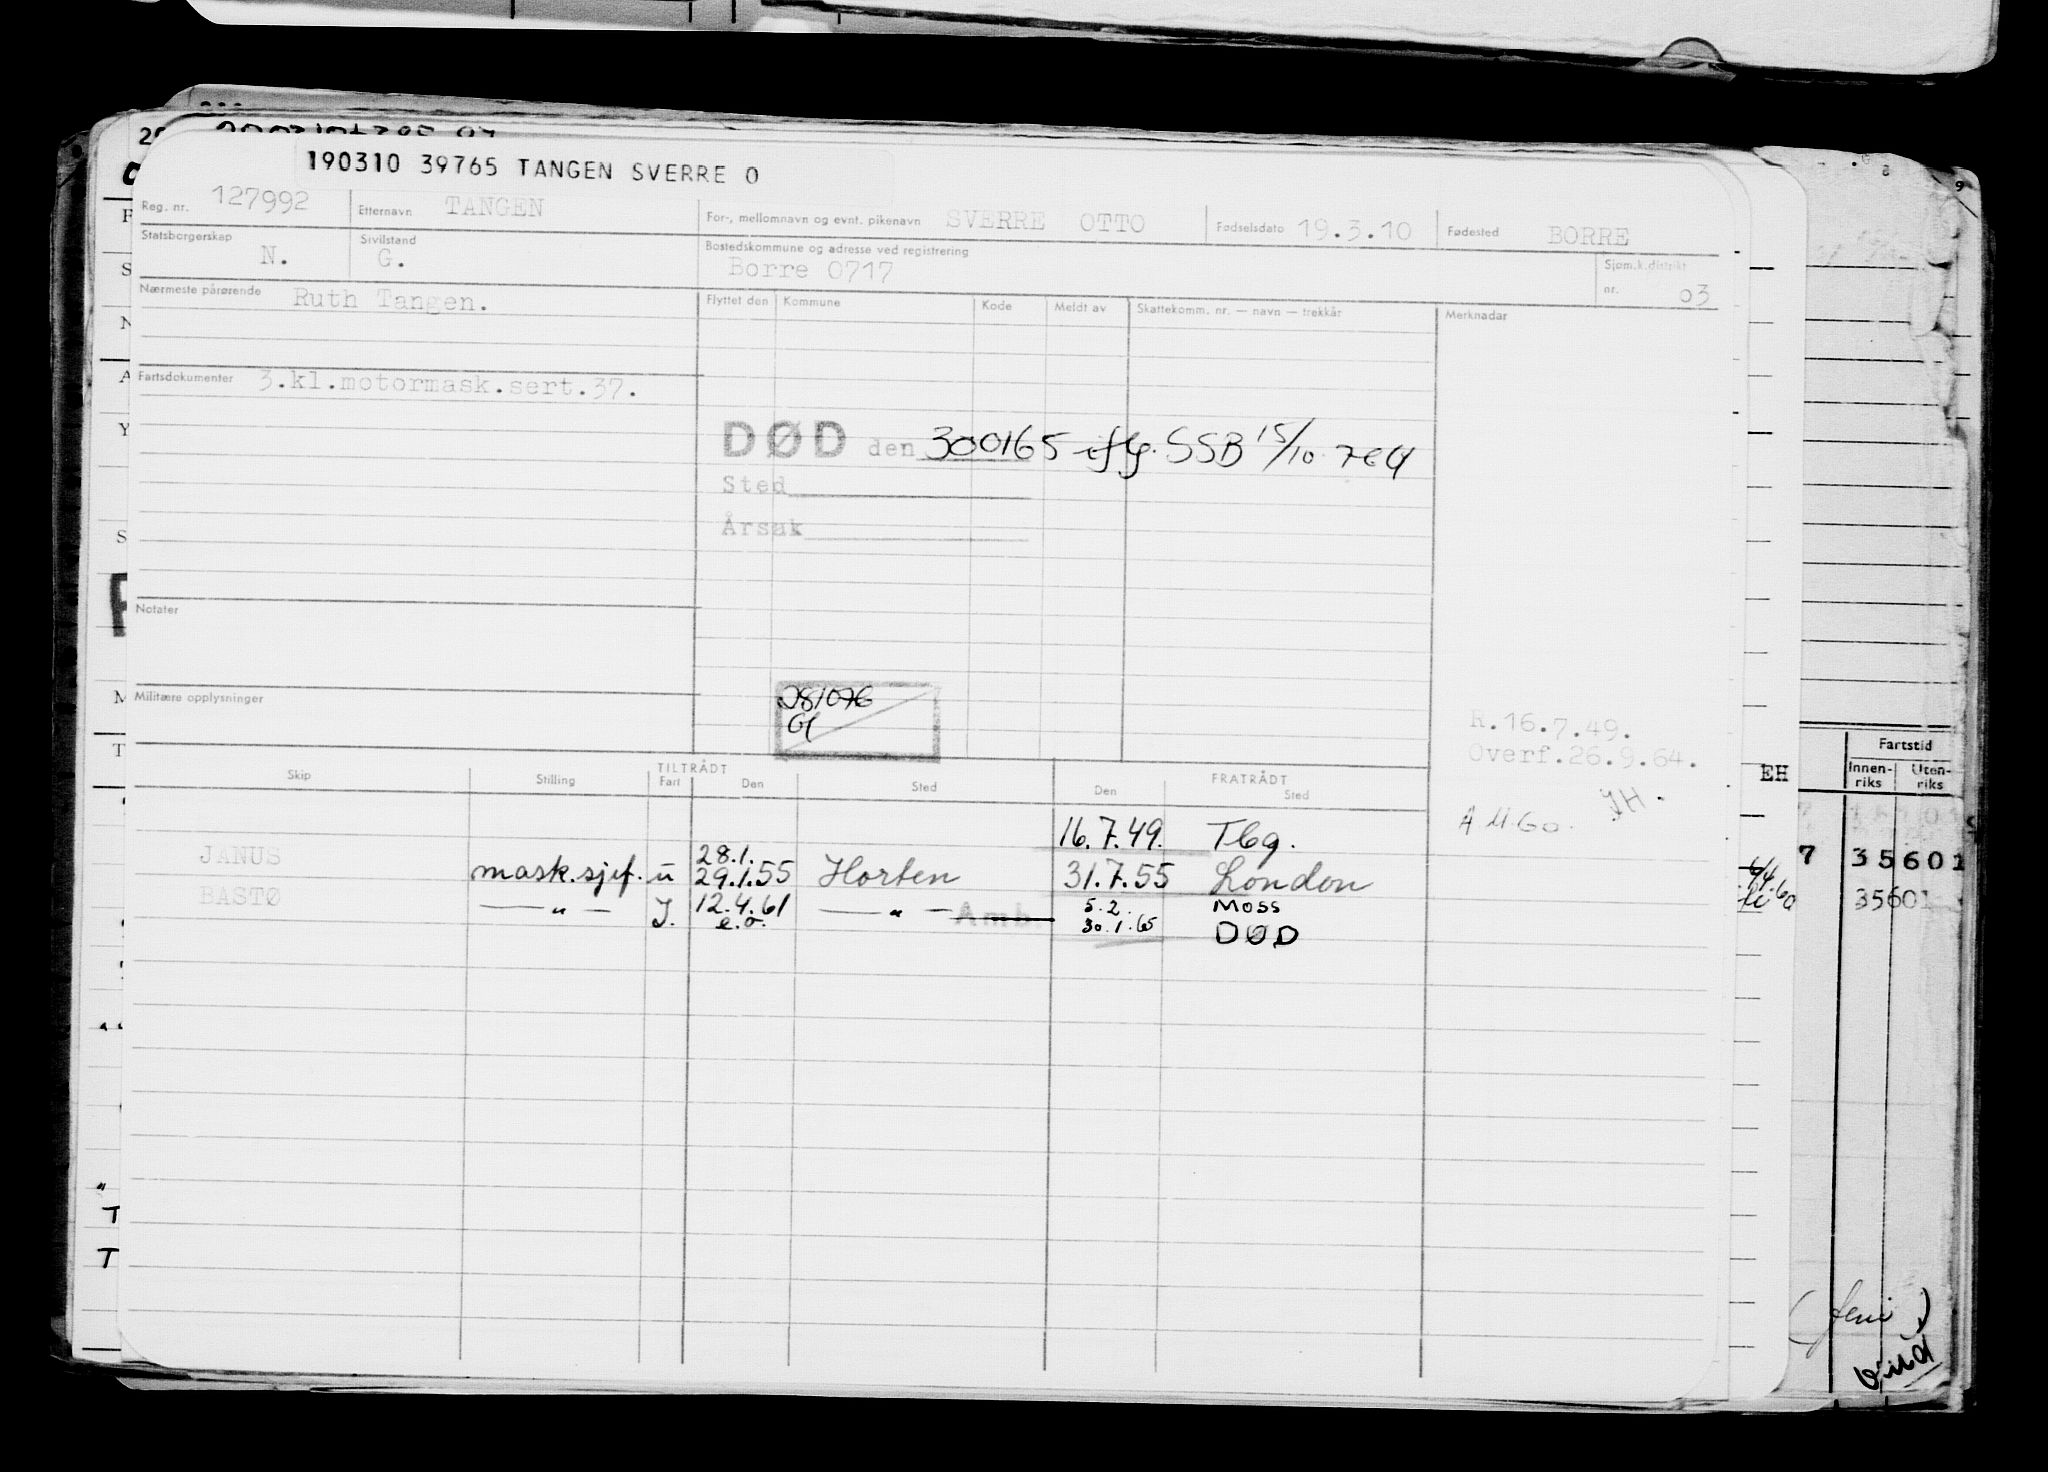 190310 39765 TANGEN SVERRE O
Reg. nr. 127992 Etternavn TANGEN For-, mellomnavn og evnt. pikenavn SVERRE OTTO Fødselsdato 19.3.10 Fødested BORRE
Statsborgerskap N. Sivilstand G. Bostedskommune og adresse ved registrering Borre 0717 Sjøm.k.distrikt nr. 03
Nærmeste pårørende Ruth Tangen. Flyttet den Kommune Kode Meldt av Skattekomm. nr. — navn — trekkår Merknadar
Fartsdokumenter 3.kl.motormask.sert.37.
DØD den 300165 iflg. SSB 15/10 76
Sted
Årsak
Notater
Militære opplysninger
281076
R.16.7.49.
Overf.26.9.64.
JH.
A 4 60.
TILTRÅDT FRATRÅDT
Skip Stilling Fart Den Sted Den Sted
16.7.49. Tbg.
JANUS mask.sjef. u 28.1. 29.1.55 Horten 31.7.55 London
BASTØ — " — J. 12.4.61 e.o. — " — Amb. 5.2. Moss
30.1.65 DØD
EH
Fartstid
Innen-riks Uten-riks
7 35601
35601